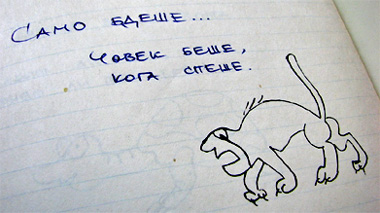 Само бдеше...
Човек беше,
кога спеше.